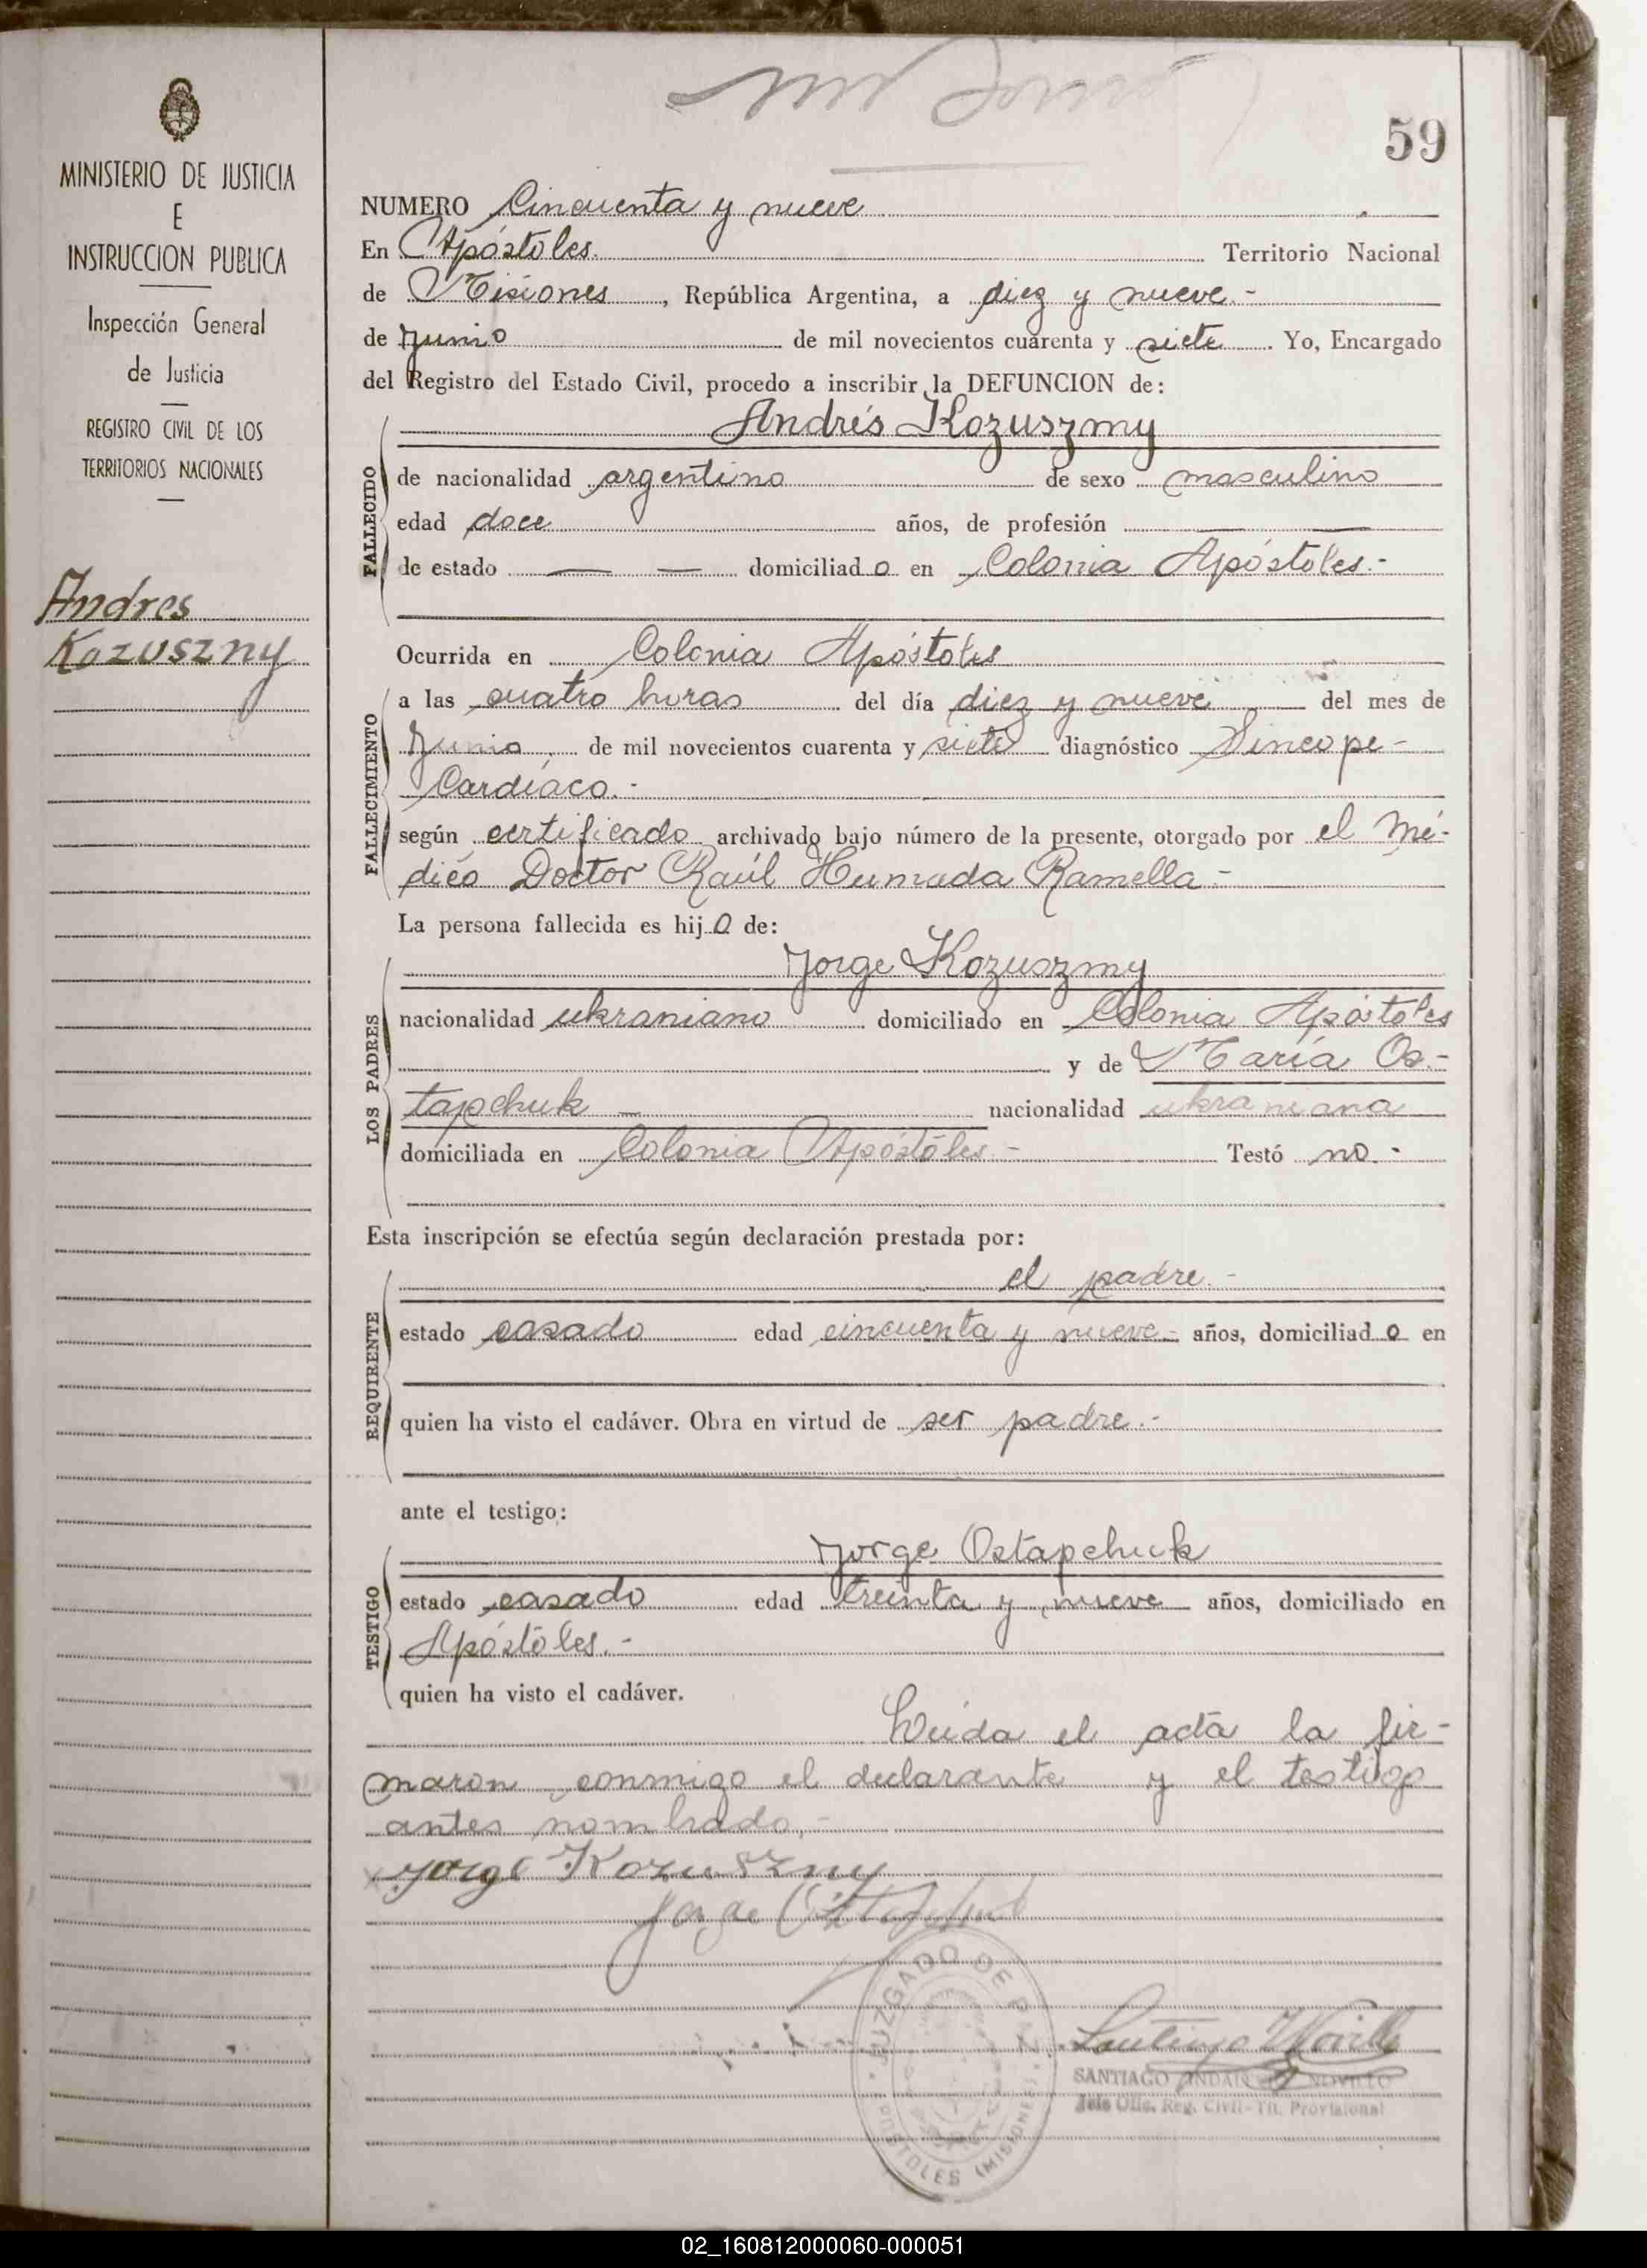 59
MINISTERIO DE JUSTICIA
E
INSTRUCCION PUBLICA
Inspección General
de Justicia
REGISTRO CIVIL DE LOS
TERRITORIOS NACIONALES
Andres
Kozuszny
NUMERO Cincuenta y nueve
En Apóstoles. Territorio Nacional
de Misiones, República Argentina, a diez y nueve.-
de Junio de mil novecientos cuarenta y siete. Yo, Encargado
del Registro del Estado Civil, procedo a inscribir la DEFUNCION de:
Andrés Kozuszny
FALLECIDO
de nacionalidad argentino de sexo masculino
edad doce años, de profesión —
de estado — — domiciliado en Colonia Apóstoles.-
Ocurrida en Colonia Apóstoles
FALLECIMIENTO
a las cuatro horas del día diez y nueve del mes de
Junio de mil novecientos cuarenta y siete diagnóstico Sincope-
Cardíaco.-
según certificado archivado bajo número de la presente, otorgado por el Mé-
dico Doctor Raúl Humada Ramella-
La persona fallecida es hijo de:
LOS PADRES
Jorge Kozuszny
nacionalidad ukraniano domiciliado en Colonia Apóstoles
y de María Os-
tapchuk — nacionalidad ukraniana
domiciliada en Colonia Apóstoles.- Testó no.-
Esta inscripción se efectúa según declaración prestada por:
REQUIRENTE
el padre.-
estado casado edad cincuenta y nueve- años, domiciliado en
quien ha visto el cadáver. Obra en virtud de ser padre.-
ante el testigo:
TESTIGO
Jorge Ostapchuk
estado casado edad treinta y nueve años, domiciliado en
Apóstoles.-
quien ha visto el cadáver.
Leida el acta la fir-
maron conmigo el declarante y el testigo
antes nombrado,-
Jorge Kozuszny
Jorge Ostapchuk
JUZGADO DE PAZ
APOSTOLES (MISIONES)
SANTIAGO NOVILLO
Jefe Ofic. Reg. Civil-Tit. Provisional
02_160812000060-000051